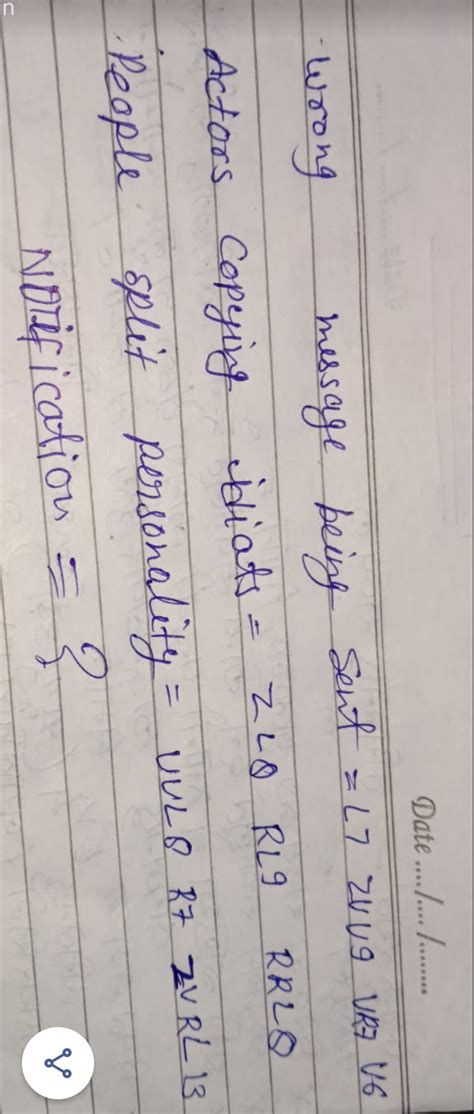 n
Date ..../..../........
. Wrong message being Sent = L7 ZVV9 VR7 V6
Actors Copying idiots = ZL8 RL9 RRL8
. People split personality = VVL8 R7 ZVRL13
NOTification = ?